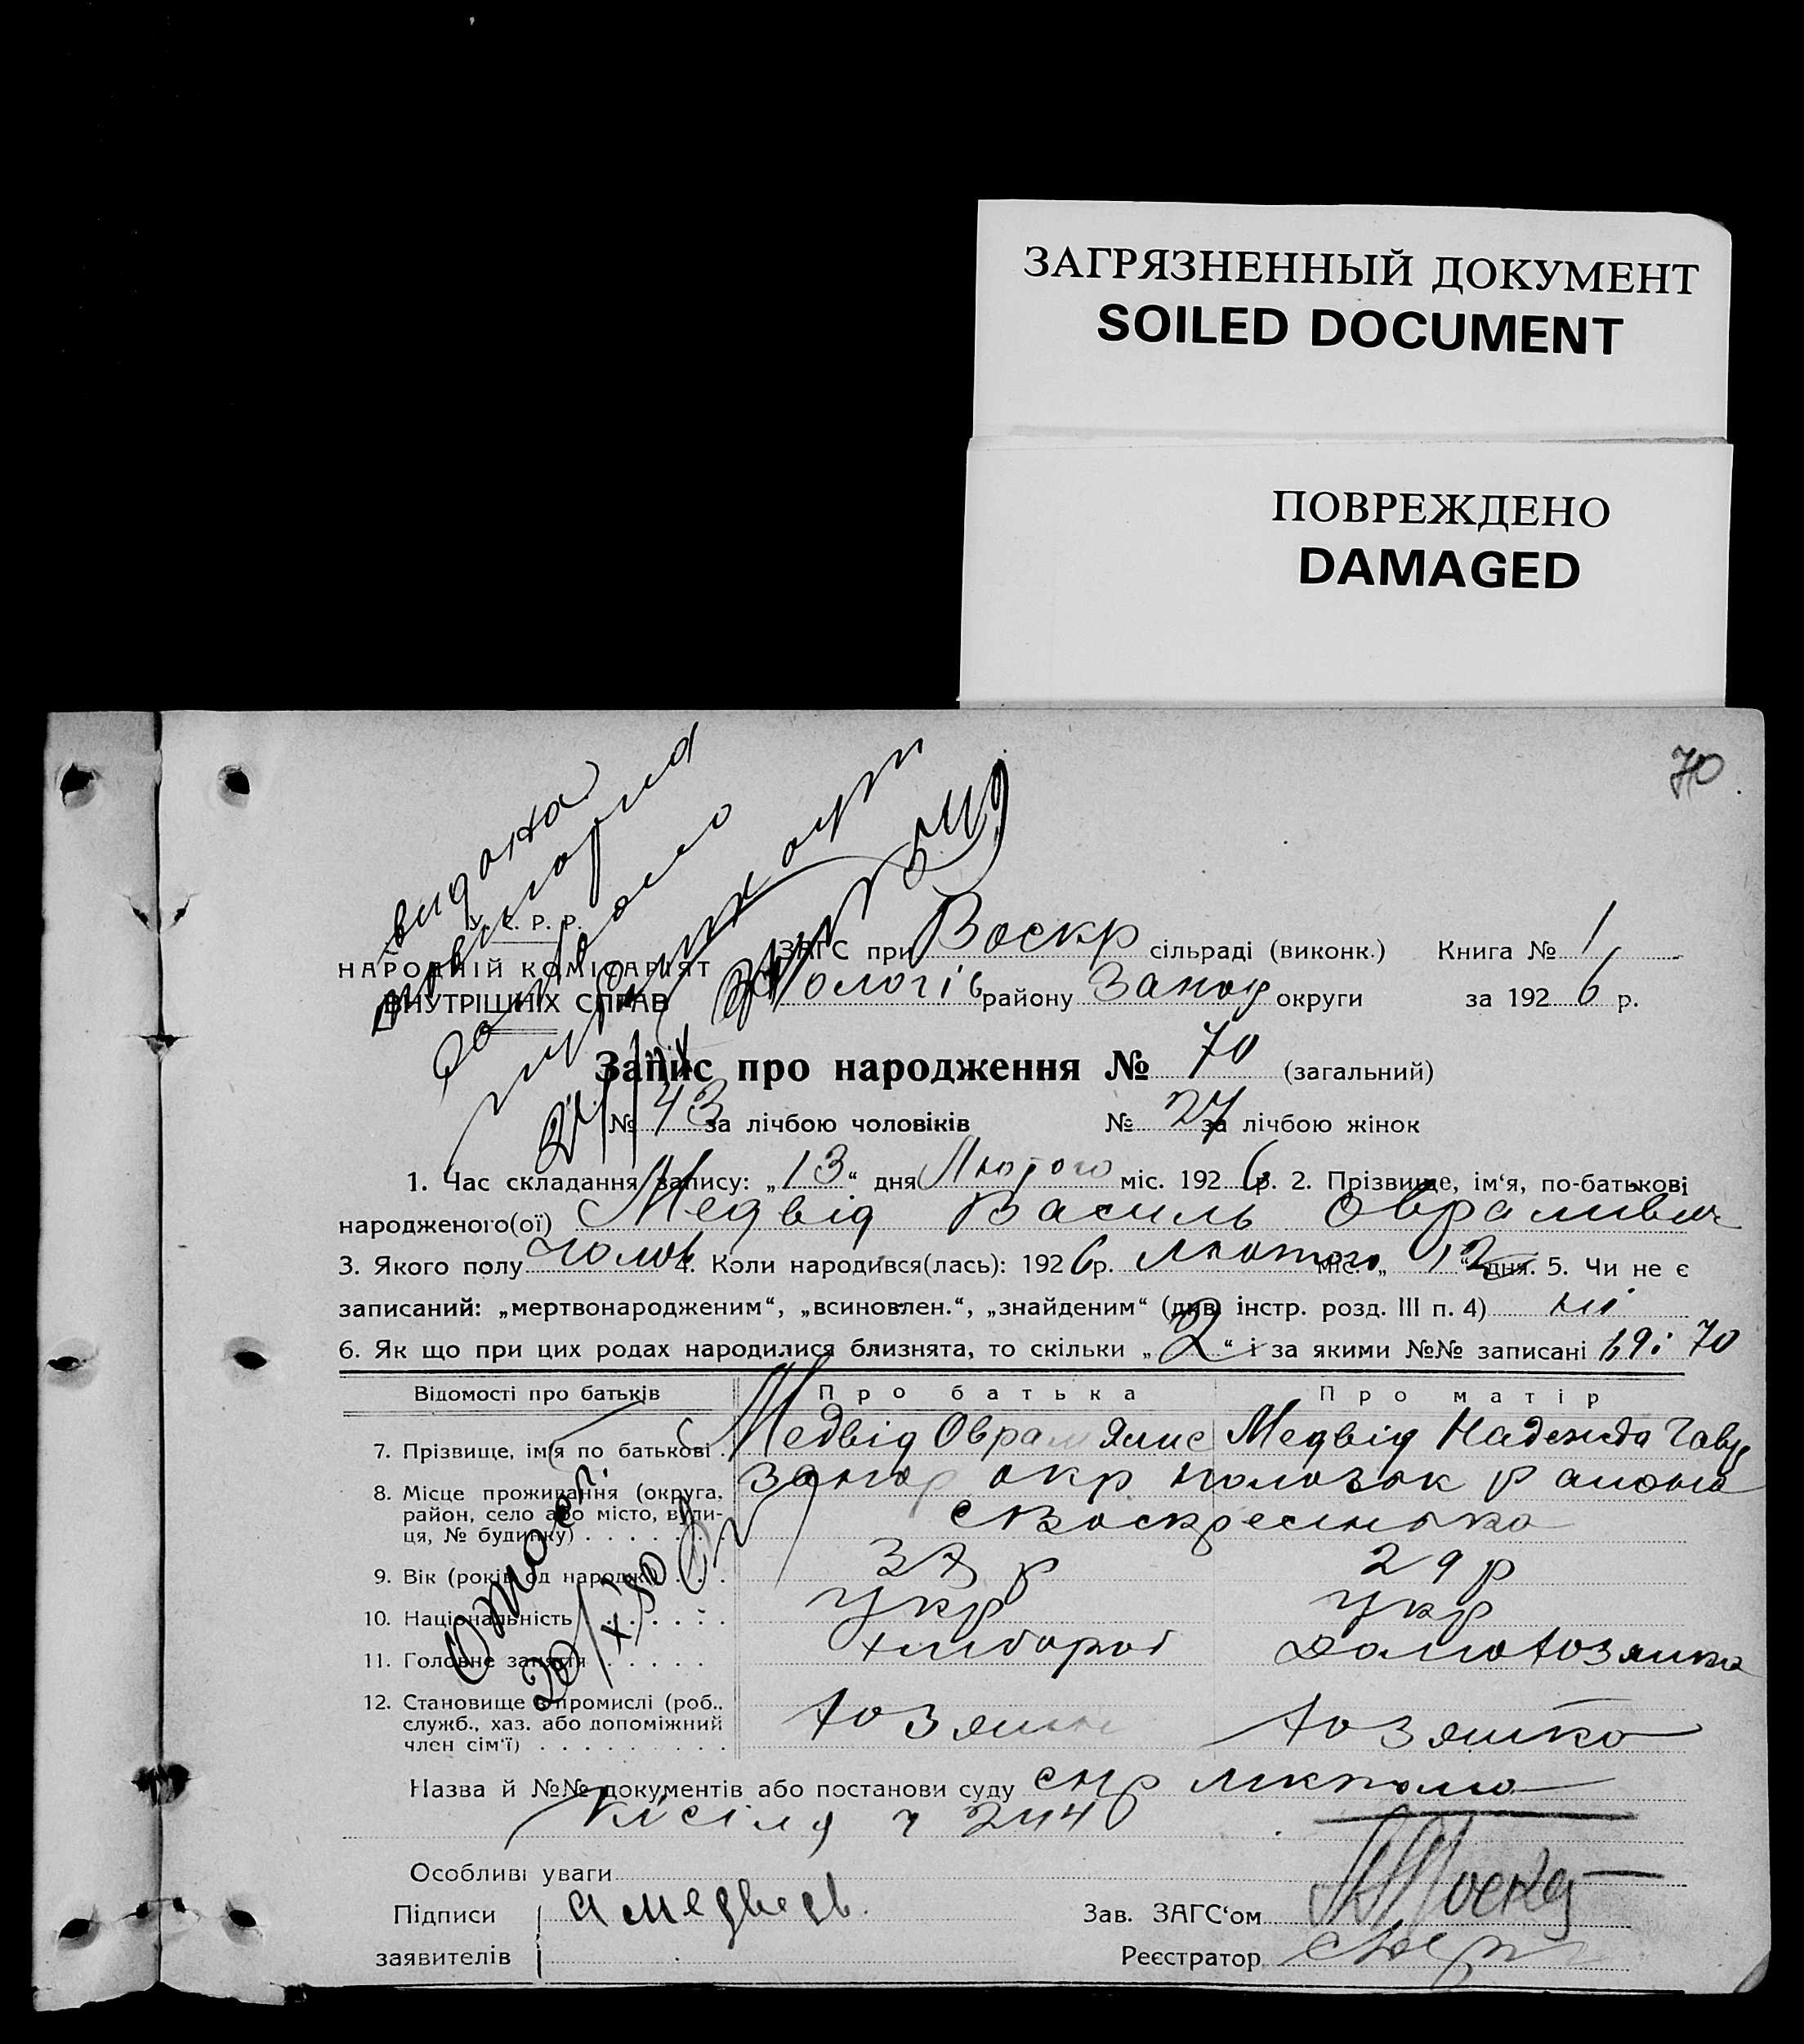 ЗАГРЯЗНЕННЫЙ ДОКУМЕНТ
SOILED DOCUMENT
ПОВРЕЖДЕНО
DAMAGED
70
видана
У. С. Р. Р.
НАРОДНІЙ КОМІСАРІЯТ
ВНУТРІШНІХ СПРАВ
ЗАГС при Воскр сільраді (виконк.) Книга № 1
Пологів району Запор округи за 1926 р.
Запис про народження № 70 (загальний)
№ 43 за лічбою чоловіків № 27 за лічбою жінок
1. Час складання запису: „13“ дня Лютого міс. 1926 р. 2. Прізвище, ім‘я, по-батькові
народженого(ої) Медвід Василь Оврамивич
3. Якого полу Чолов 4. Коли народився(лась): 1926 р. Лютого міс. „12“ дня. 5. Чи не є
записаний: „мертвонародженим“, „всиновлен.“, „знайденим“ (див. інстр. розд. III п. 4) ні
6. Як що при цих родах народилися близнята, то скільки „2“ і за якими №№ записані 69 і 70
Відомості про батьків Про батька Про матір
7. Прізвище, ім‘я по батькові . Медвід Оврам Медвід Надежда
8. Місце проживання (округа, район, село або місто, вули-ця, № будинку) Запор окр пологок района
с Воскресенька
9. Вік (років од народж.) . . . 37 р 29 р
10. Національність . . . . . . Укр Укр
11. Головне заняття . . . . . хлибороб Домохозяика
12. Становище в промислі (роб., служб., хаз. або допоміжний член сім‘ї) . . . . . . . . . хозяин хозяика
Назва й №№ документів або постанови суду
ч 244
Особливі уваги
Підписи А Медведь. Зав. ЗАГС‘ом
заявителів Реєстратор